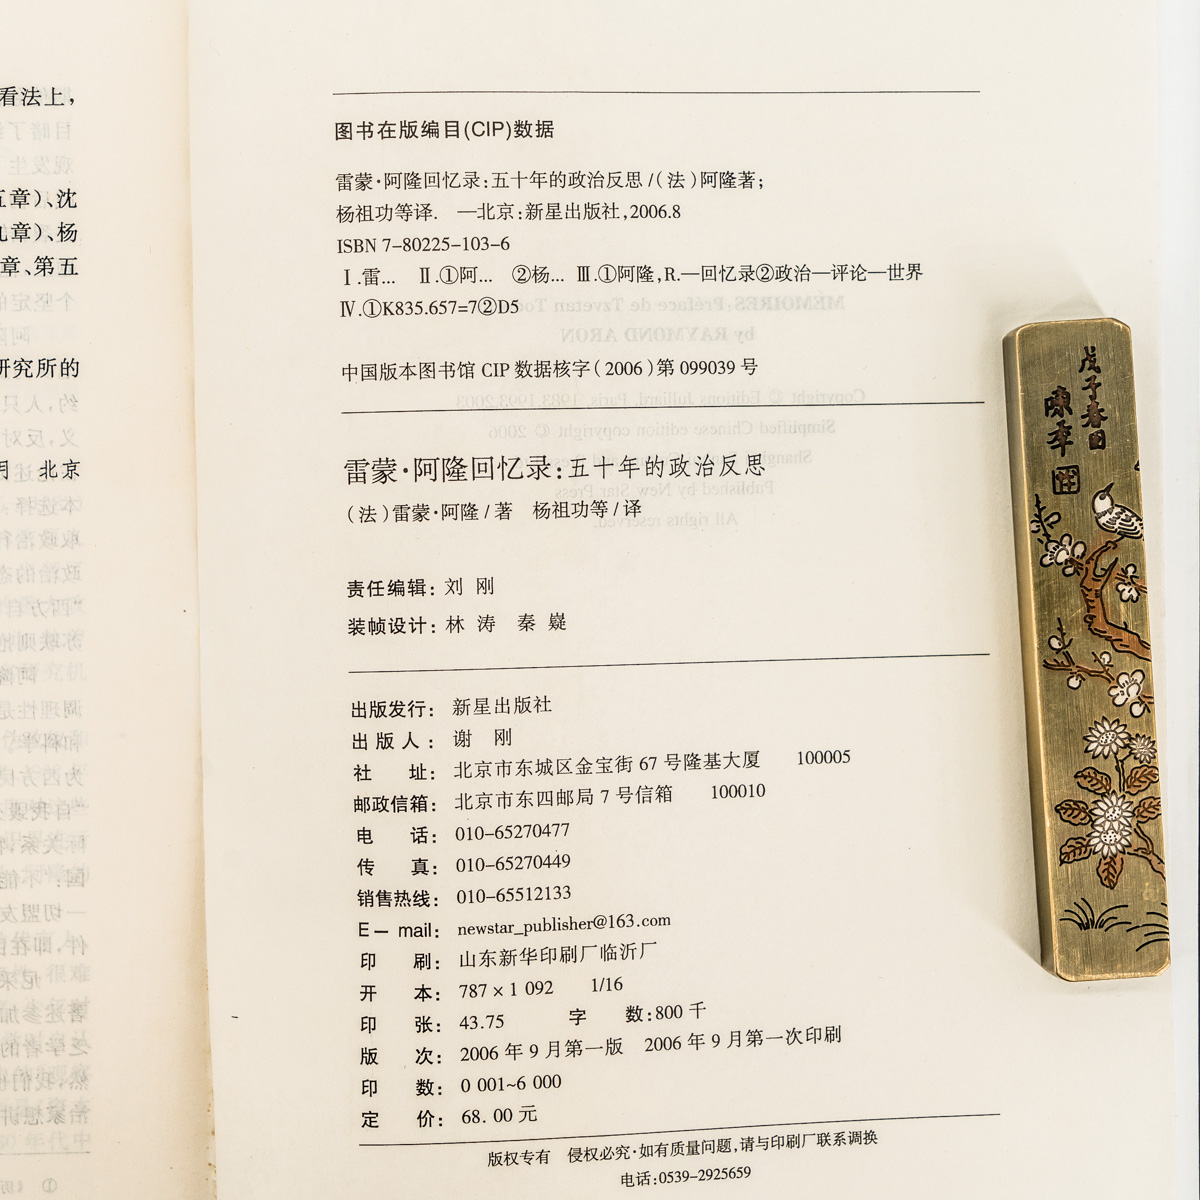 看法上，
五章）、沈
九章）、杨
章、第五
研究所的
月　北京
图书在版编目(CIP)数据
雷蒙·阿隆回忆录：五十年的政治反思/（法）阿隆著；
杨祖功等译. —北京：新星出版社，2006.8
ISBN 7-80225-103-6
Ⅰ.雷… Ⅱ.①阿… ②杨… Ⅲ.①阿隆，R.—回忆录②政治—评论—世界
Ⅳ.①K835.657=7②D5
中国版本图书馆CIP数据核字（2006）第099039号
雷蒙·阿隆回忆录：五十年的政治反思
（法）雷蒙·阿隆/著 杨祖功等/译
责任编辑：刘 刚
装帧设计：林 涛 秦 嶷
出版发行：新星出版社
出 版 人：谢 刚
社 址：北京市东城区金宝街67号隆基大厦 100005
邮政信箱：北京市东四邮局7号信箱 100010
电 话：010-65270477
传 真：010-65270449
销售热线：010-65512133
E－mail：newstar_publisher@163.com
印 刷：山东新华印刷厂临沂厂
开 本：787×1 092 1/16
印 张：43.75 字 数：800千
版 次：2006年9月第一版 2006年9月第一次印刷
印 数：0 001~6 000
定 价：68.00元
版权专有 侵权必究·如有质量问题，请与印刷厂联系调换
电话：0539-2925659
戊子春日
陳年